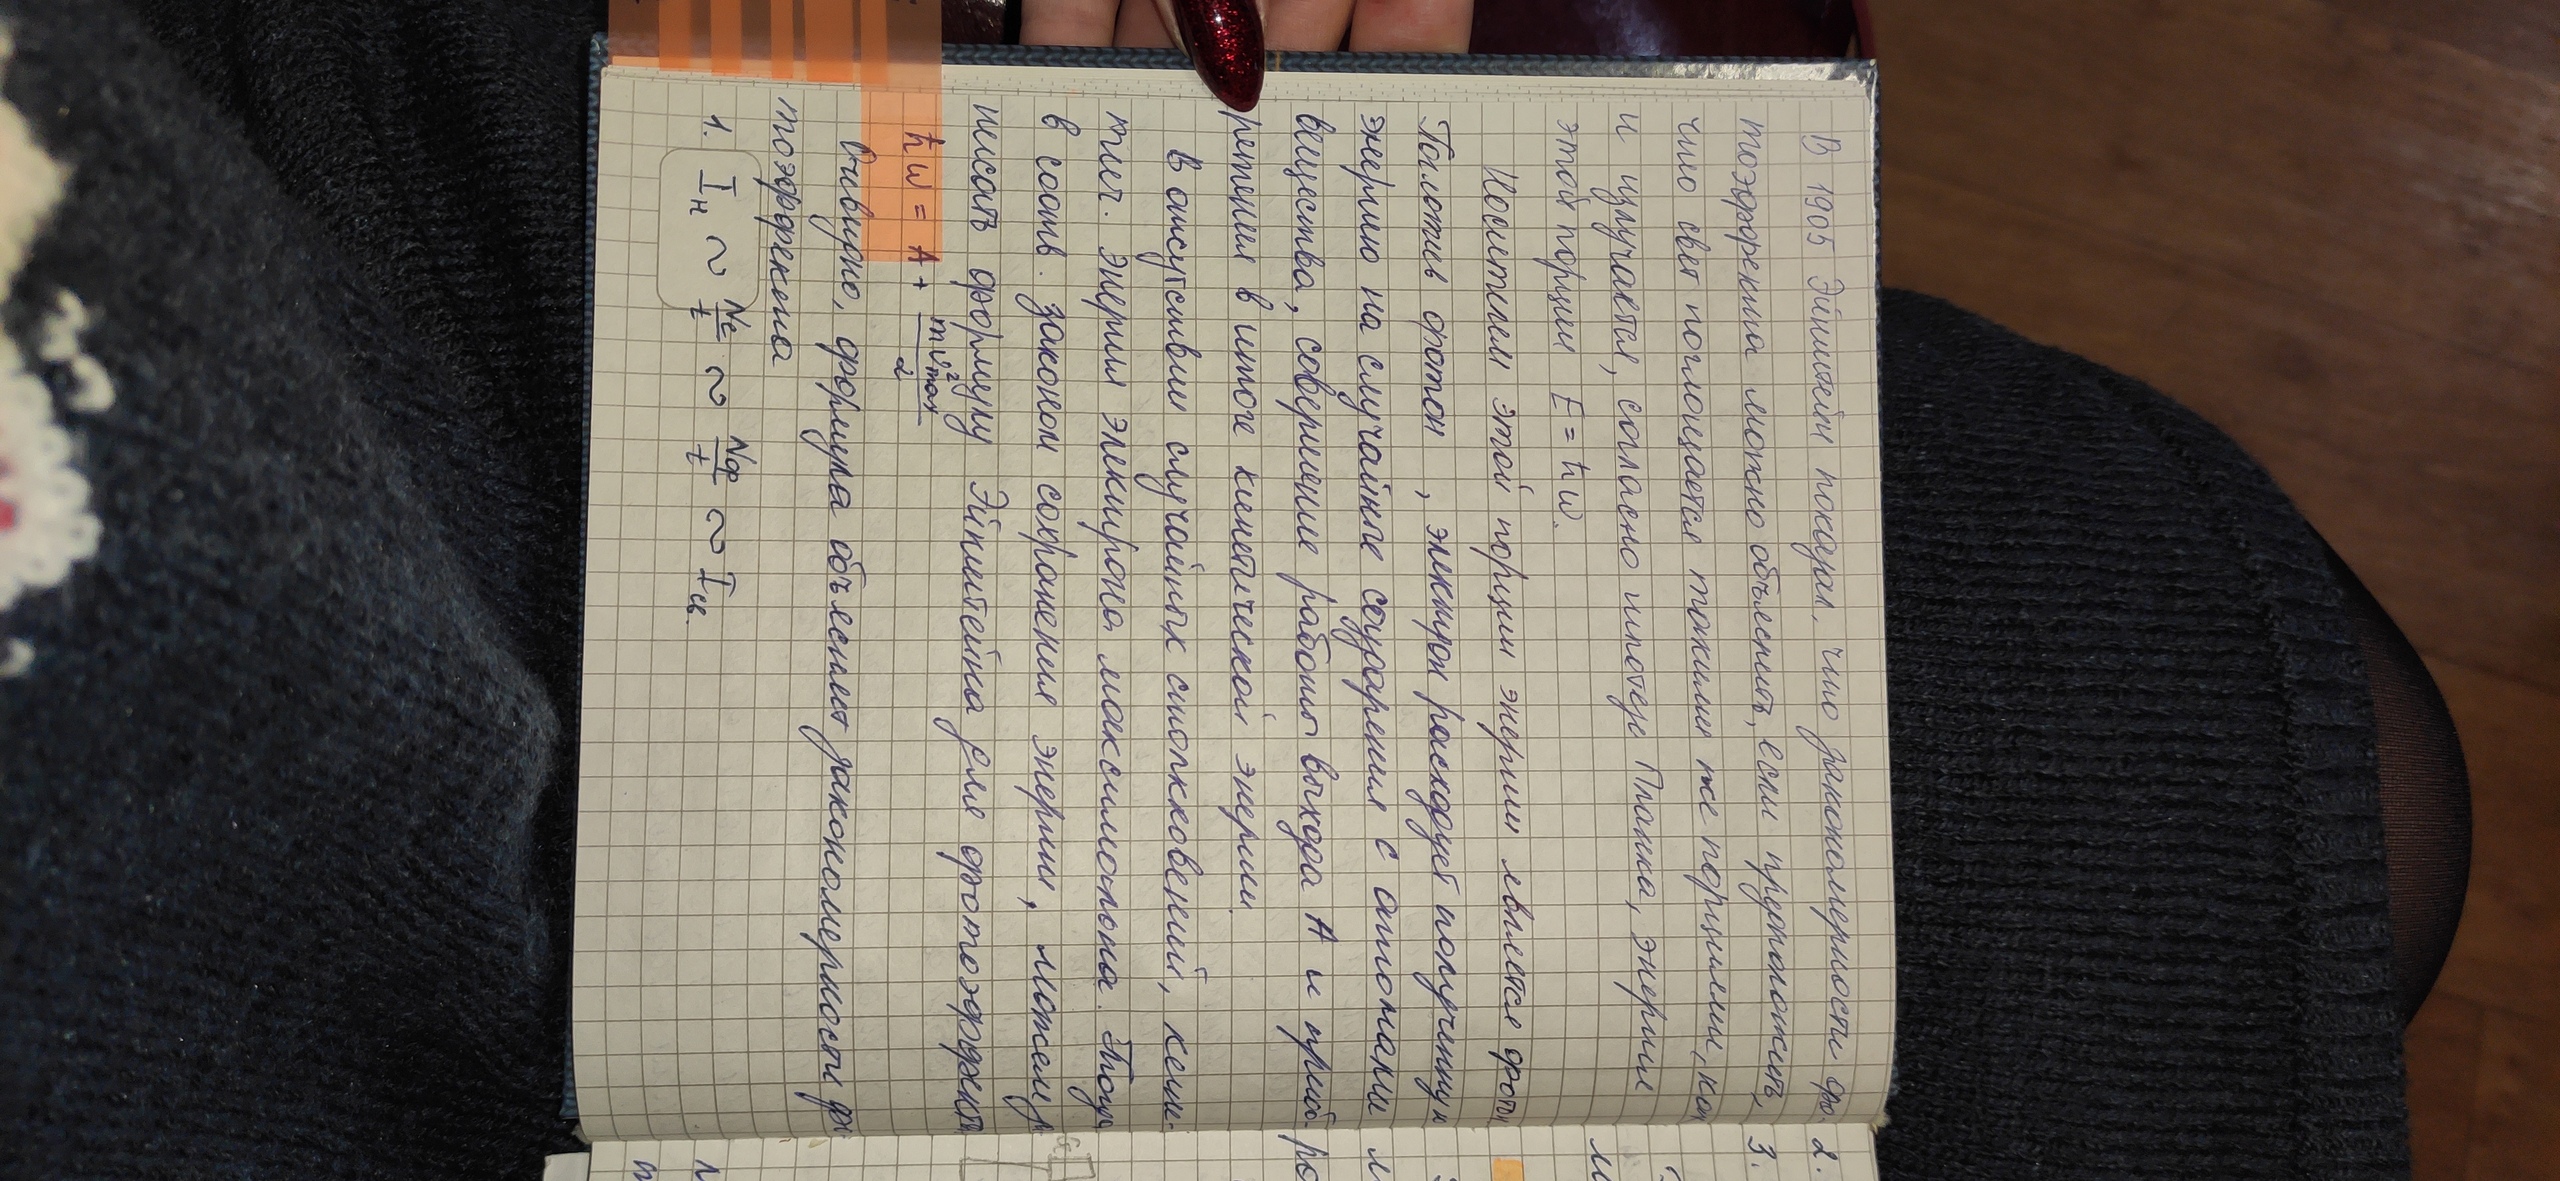 В 1905 Эйнштейн показал, что закономерности фо-
тоэффекта можно объяснить, если предположить,
что свет поглощается такими же порциями, как
и излучается, согласно гипотезе Планка, энергия
этой порции E = ħω.
Носителем этой порции энергии является фотон
Поглотив фотон , электрон расходует полученную
энергию на случайные соударения с атомами
вещества, совершение работы выхода А и приоб-
ретения в итоге кинетической энергии.
В отсутствии случайных столкновений, кине-
тич. энергия электрона максимальна. Тогда
в соотв. законом сохранения энергии, можем за
писать формулу Эйнштейна для фотоэффекта
ħω = A + mv²max / 2
Очевидно, формула объясняет закономерности фо
тоэффекта
1. Iн ~ Ne/t ~ Nф/t ~ Iсв.
2.
3.